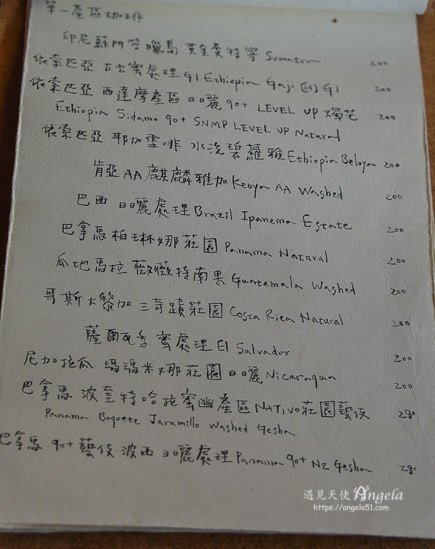 單一產區咖啡
印尼蘇門答臘島 黃金曼特寧 Sumatra 200
依索匹亞 古吉蜜處理 G1 Ethiopia Guji G1 200
依索匹亞 西達摩產區日曬 90+ LEVEL UP 燭芒 200
Ethiopia Sidamo 90+ SNMP LEVEL UP Natural
依索匹亞 耶加雪啡 水洗碧蘿雅 Ethiopia Beloya 200
肯亞AA 麒麟雅加 Kenya AA Washed 200
巴西 日曬處理 Brazil Ipanema Estate 200
巴拿馬柏林娜莊園 Panama Natural 200
瓜地馬拉 薇薇特南果 Guatemala Washed 200
哥斯大黎加 三奇蹟莊園 Costa Rica Natural 200
薩爾瓦多 蜜處理 El Salvador 200
尼加拉瓜 瑪瑪米娜莊園日曬 Nicaragua 200
巴拿馬 波奎特哈拉蜜幽產區 NATIVO莊園藝伎 280
Panama Boquete Jaramillo Washed Gesha
巴拿馬 90+ 藝伎 波西 日曬處理 Panama 90+ N2 Gesha 280
遇見天使 Angela
https://angela51.com